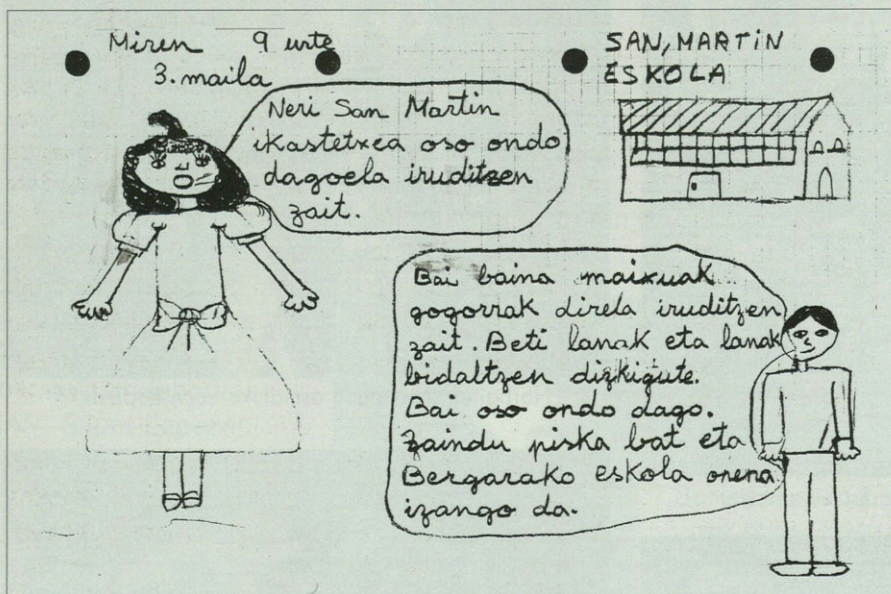 Miren 9 urte
3. maila
SAN, MARTIN
ESKOLA
Neri San Martin
ikastetxea oso ondo
dagoela iruditzen
zait.
Bai baina maixuak
gogorrak direla iruditzen
zait. Beti lanak eta lanak
bidaltzen dizkigute.
Bai oso ondo dago.
Zaindu piska bat eta
Bergarako eskola onena
izango da.